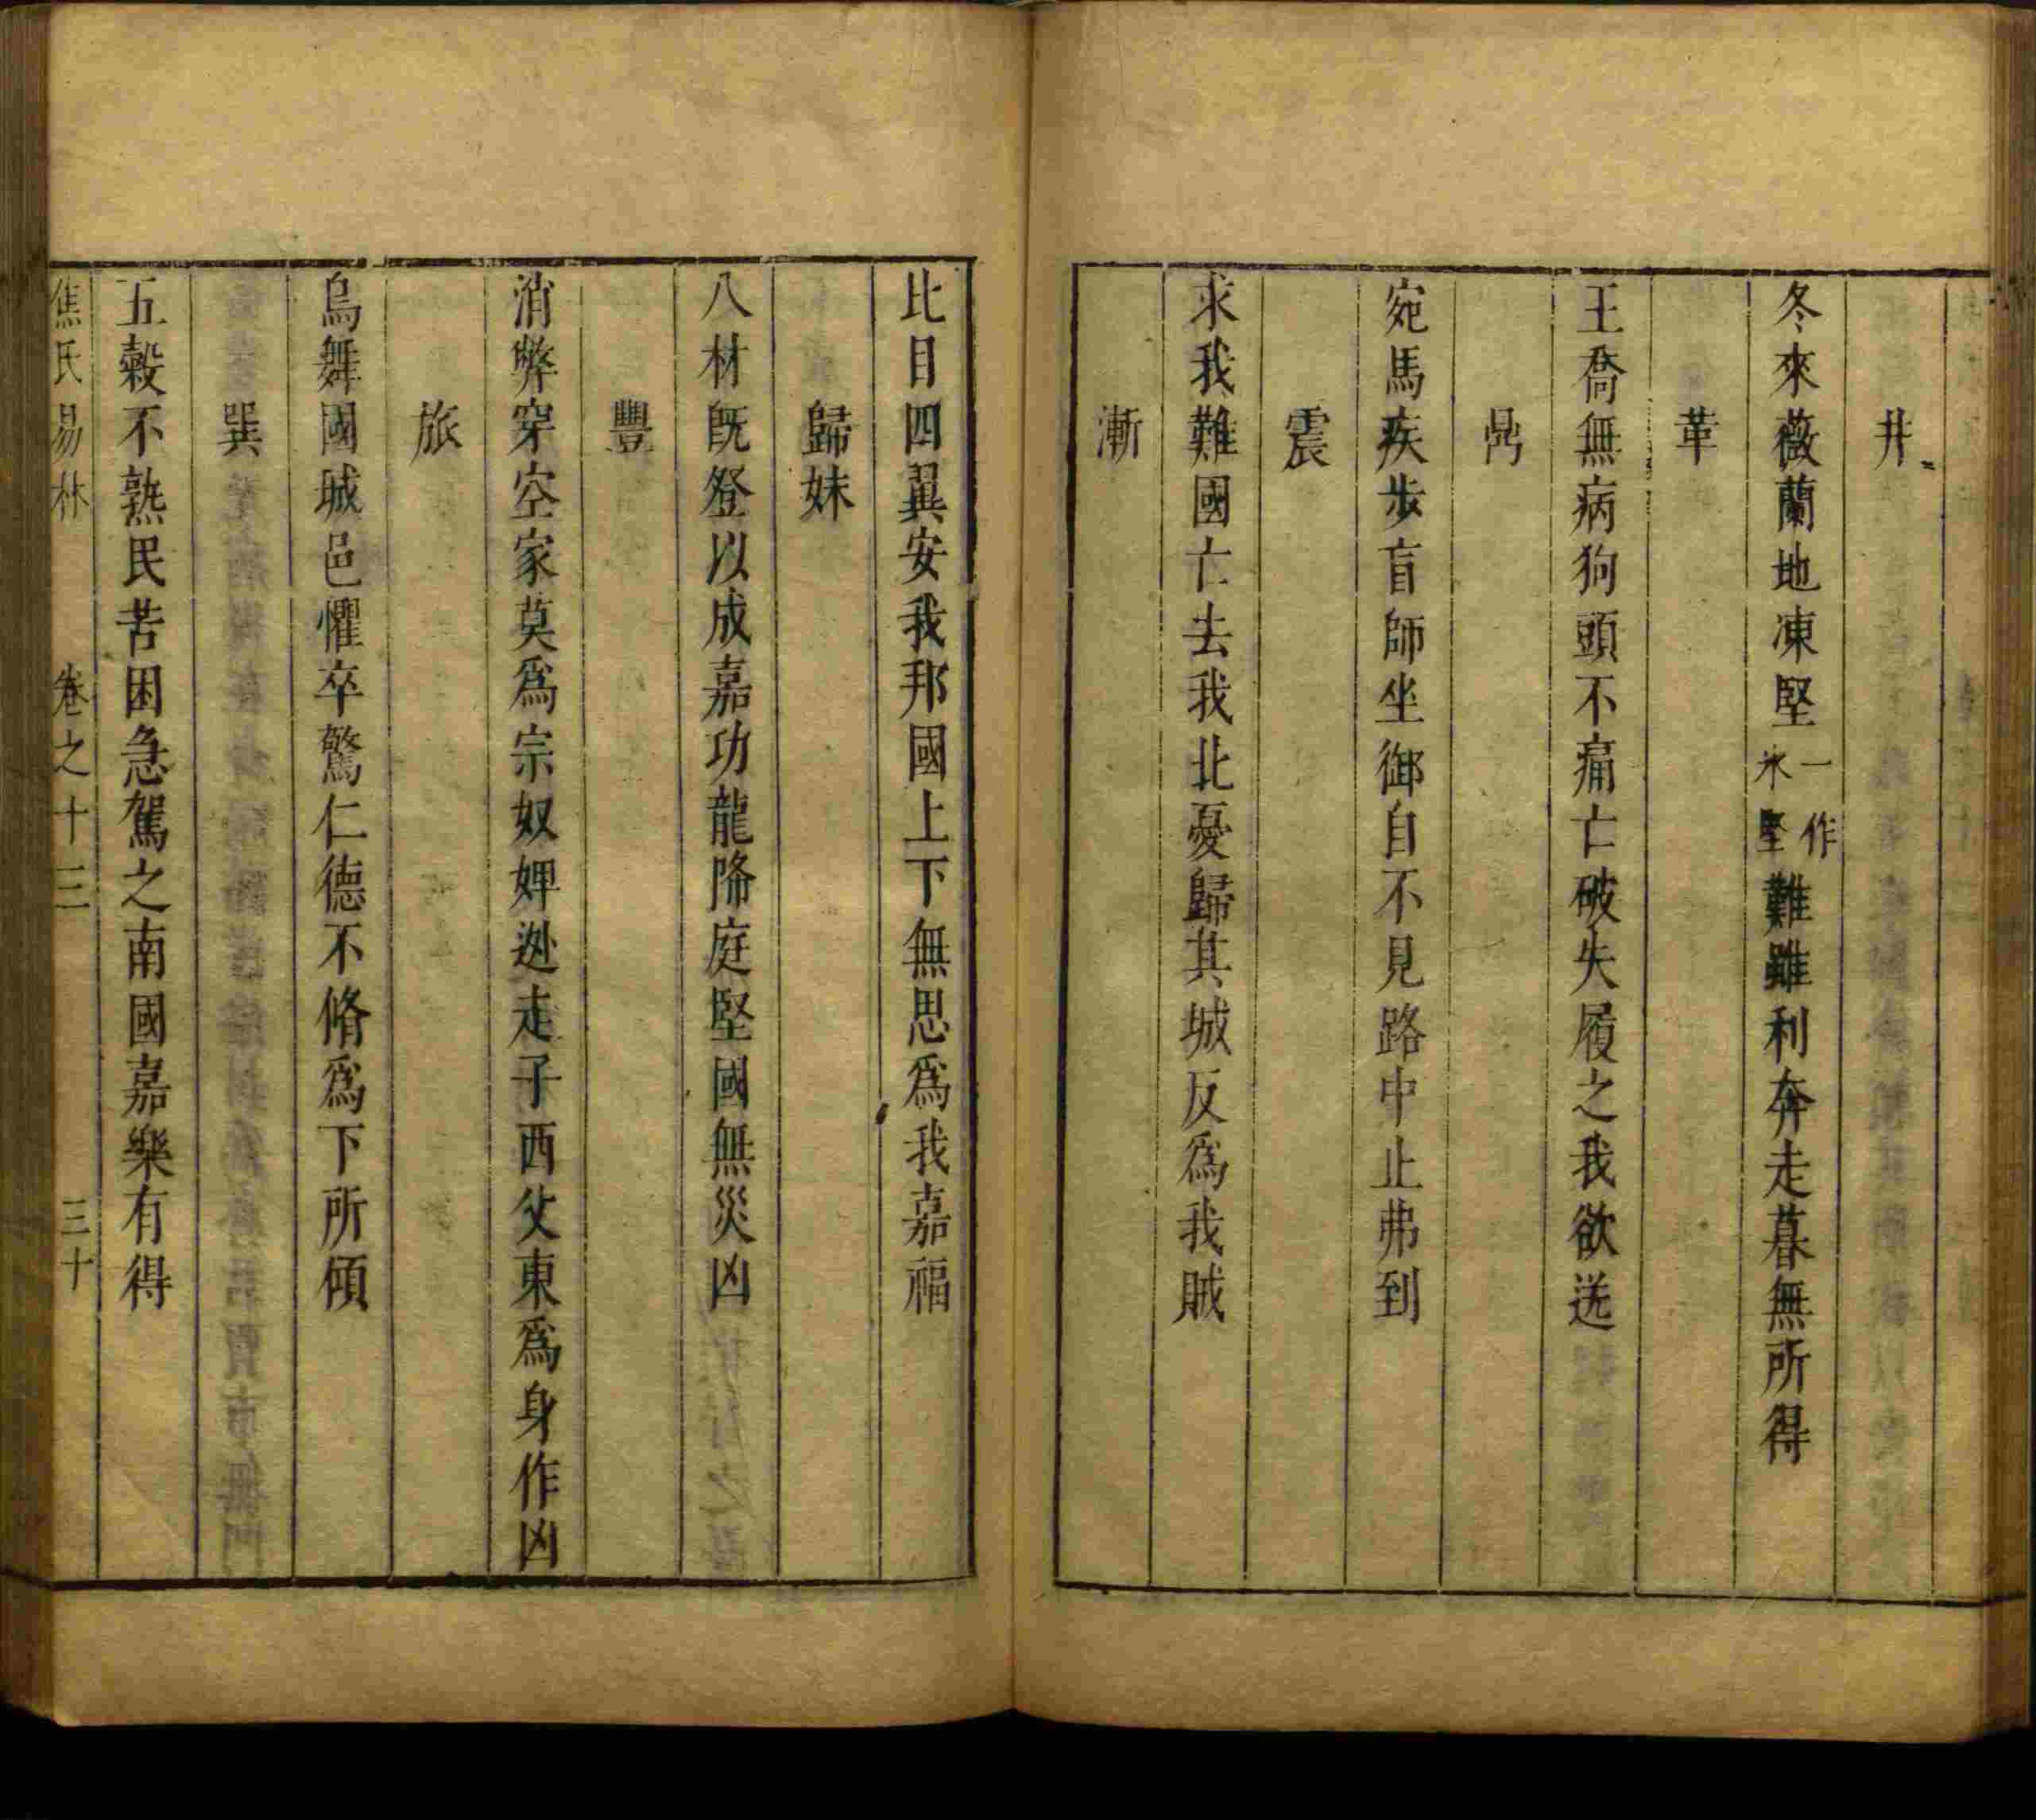 井
冬來薇蘭地凍堅一作氷堅難雖利奔走暮無所得
革
王喬無病狗頭不痛亡破失履之我欲送
鼎
宛馬疾步盲師坐御自不見路中止弗到
震
求我難國亡去我北憂歸其城反爲我賊
漸
比目四翼安我邦國上下無思爲我嘉福
歸妹
八材旣登以成嘉功龍降庭堅國無災凶
豐
消弊穿空家莫爲宗奴婢迯走子西父東爲身作凶
旅
烏舞國城邑懼卒驚仁德不脩爲下所傾
巽
五穀不熟民苦困急駕之南國嘉樂有得
焦氏易林 卷之十三 三十